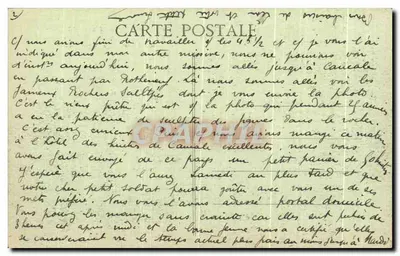 CARTE POSTALE
nous avons fini de travailler à les 4h ½ et je vous l'ai
indiqué dans mon autre missive, nous ne pouvions voir
aujourd'hui, nous sommes allés jusqu'à Cancale
en passant par Rotheneuf là nous sommes allés voir les
fameux Rochers Sculptés dont je vous envoie la photo.
C'est le vieux prêtre qui est sur la photo qui pendant années
a eu la patience de sculpter des figures dans le rocher.
C'est assez curieux. Puis nous avons mangé ce matin
à l'Hôtel des huîtres de Cancale excellentes, nous vous
avons fait envoyé de ce pays un petit panier de
J'espère que vous l'aurez samedi au plus tard et que
notre cher petit soldat pourra goûter avec vous un de ses
mets préférés. Nous vous l'avons adressé postal domicile
Vous pouvez les manger sans crainte car elles sont pêchées de
heures cet après midi et la bonne femme nous a certifié qu'elles
se conservaient vu le temps actuel plus frais au moins jusqu'à Mardi